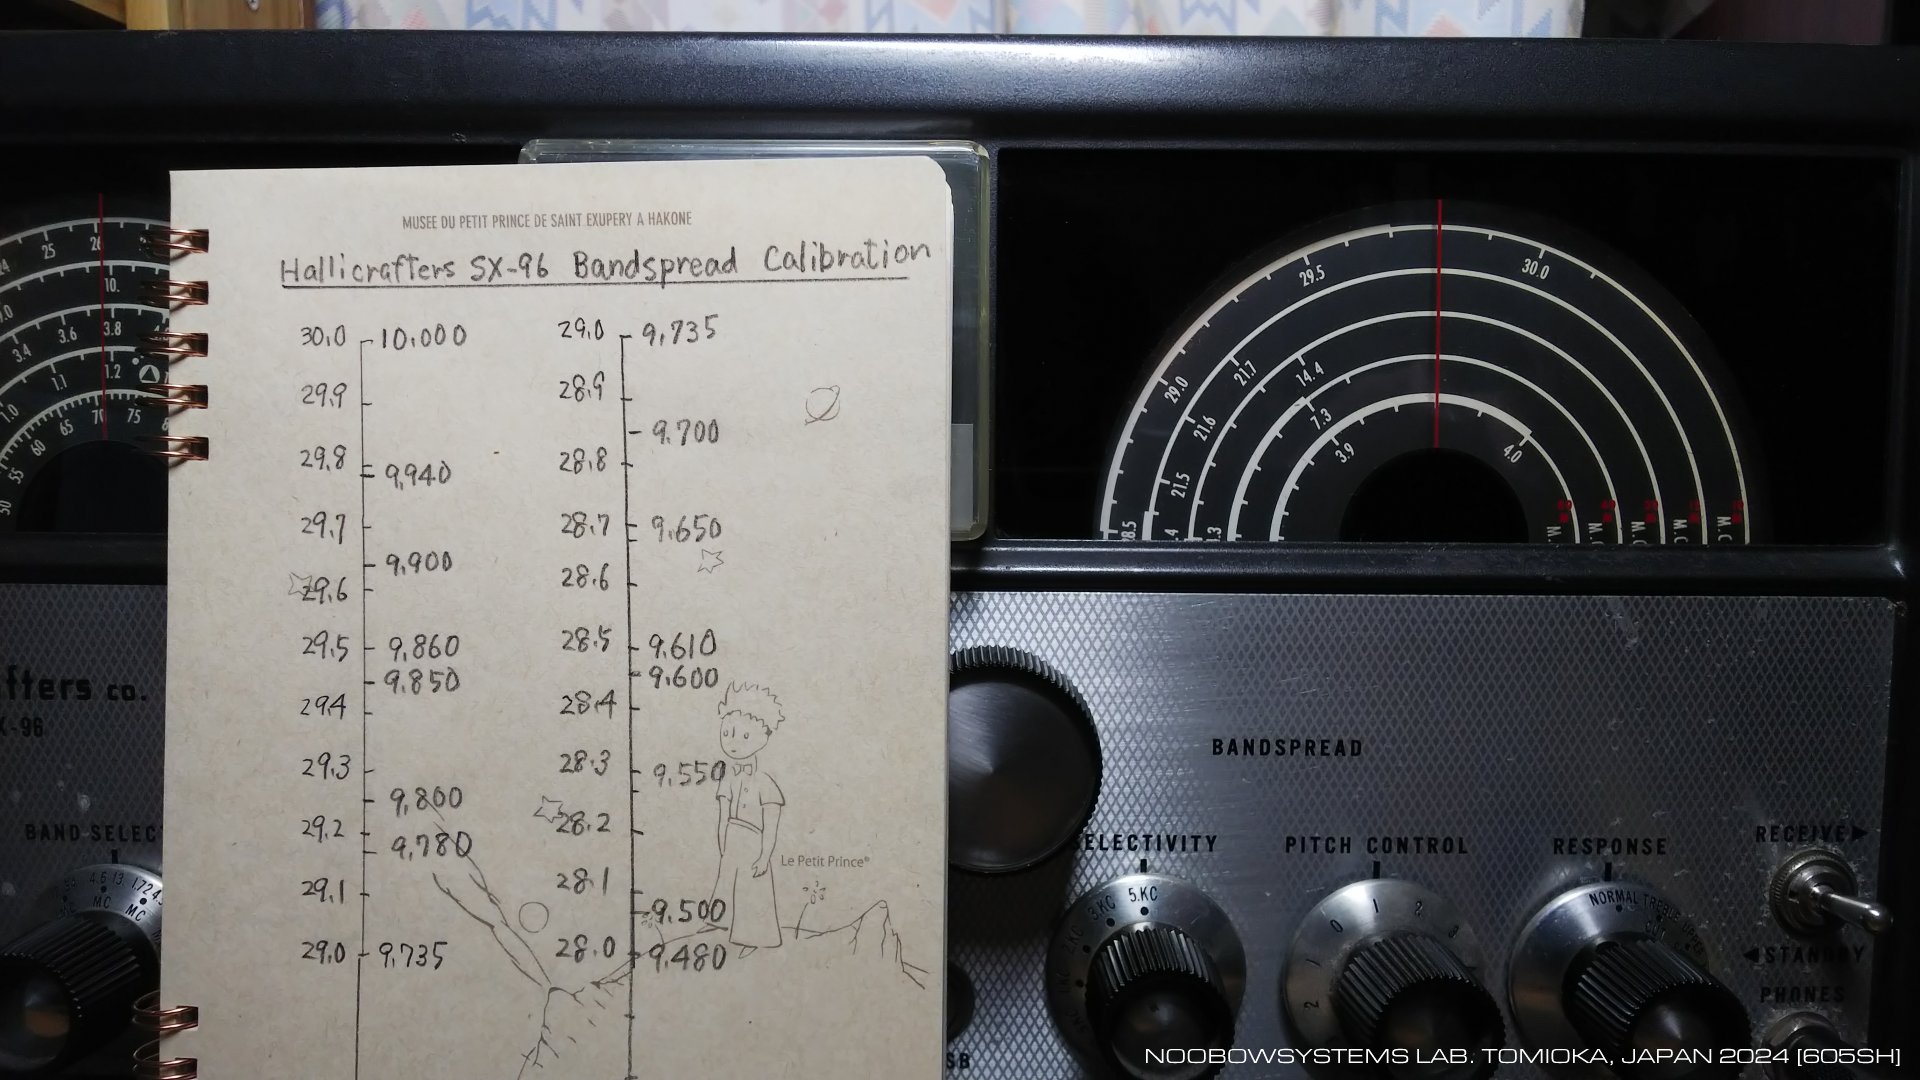 MUSEE DU PETIT PRINCE DE SAINT EXUPERY A HAKONE
Hallicrafters SX-96 Bandspread Calibration
30.0 10.000
29.9
29.8
9.940
29.7
9.900
29.6
29.5 9.860
9.850
29.4
29.3
9.800
29.2
9.780
29.1
29.0 9.735
29.0 9.735
28.9
9.700
28.8
28.7 9.650
28.6
28.5 9.610
9.600
28.4
28.3 9.550
28.2
28.1
9.500
28.0 9.480
Le Petit Prince®
24 25 26
10.
3.4 3.6 3.8
1.0 1.1 1.2
50 55 60 65 70 75
28.5 29.0 29.5 30.0
21.5 21.6 21.7
14.4
7.3
3.9 4.0
fters co.
X-96
BAND SELEC
4.6 13 1.72
MC MC
BANDSPREAD
SELECTIVITY
3.KC 5.KC
PITCH CONTROL
2 1 0 1 2 3
RESPONSE
NORMAL TREBLE
RECEIVE▶
◀STANDBY
PHONES
SB
NOOBOWSYSTEMS LAB. TOMIOKA, JAPAN 2024 [605SH]